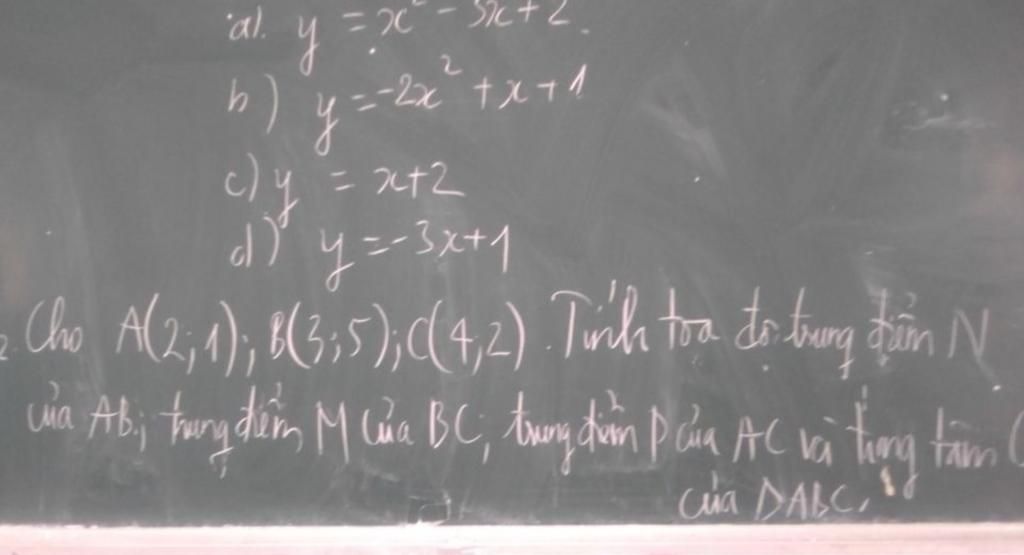 a). y = x² - 3x + 2.
b) y = -2x² + x + 1
c) y = x + 2
d) y = -3x + 1
2. Cho A(2;1); B(3;5); C(4,2). Tính toạ độ trung điểm N
của AB; trung điểm M của BC; trung điểm P của AC và trọng tâm
của ΔABC.